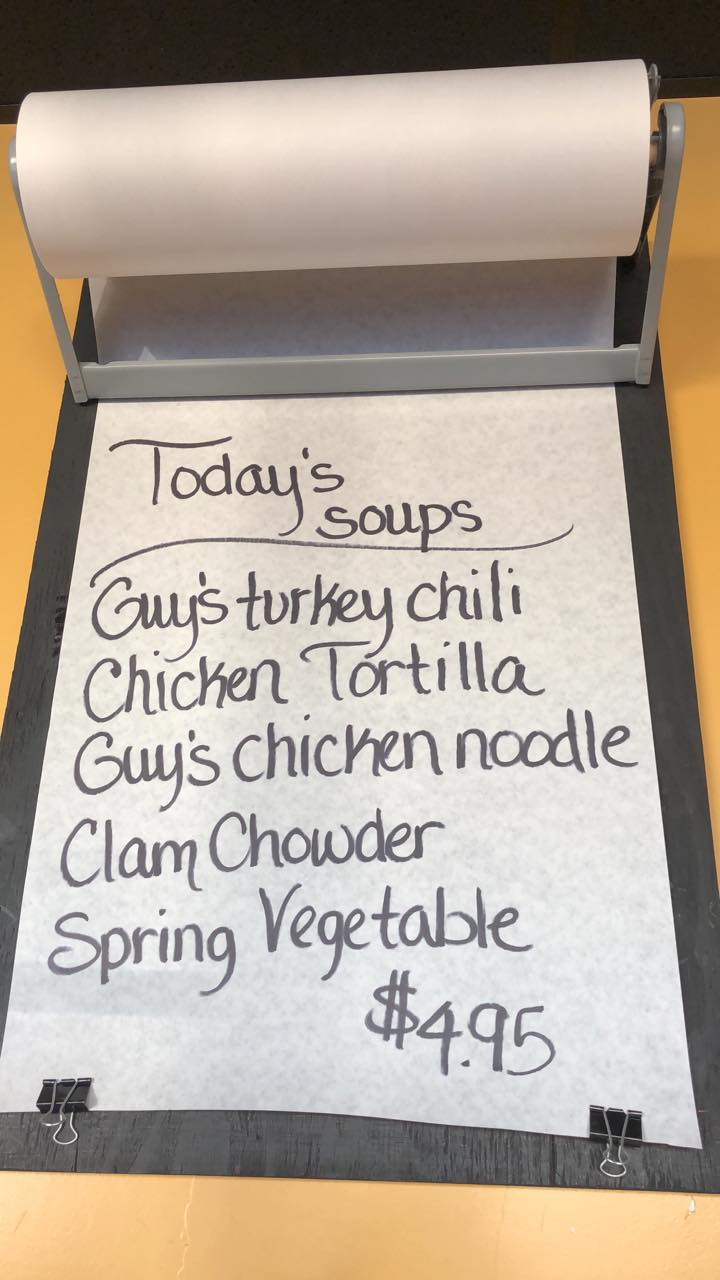 Today's
soups
Guy's turkey chili
Chicken Tortilla
Guy's chicken noodle
Clam Chowder
Spring Vegetable
$4.95